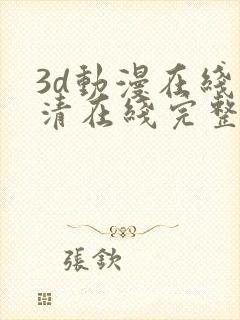 3d動漫在綫
清在綫完整
張欽